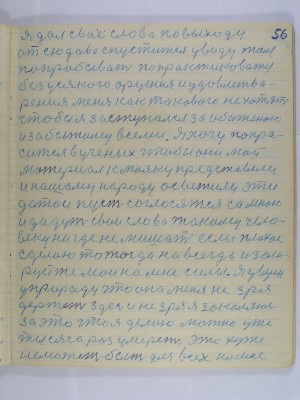 56
Я дал свах слова по выходу
от сюдова спустится уводу там
попробовать попрактиковать
без усякого орудения и удовлетва-
рения меня как такового не хотят
чтобы я заступался за обиженого
и забытому всеми. Я хочу попра-
сится в ученых чтобы они мой
материал к маяку представили
и нашему народу осветили эти
дати пуст соглосятся со мною
и дадут свои слова такому чело-
веку нигде не мешать если плохое
сделаю то тогда на всегда изоли-
руйте мои на мне силы. Я уверен
у природу что она меня не зря
держит здесь и не зря я закалялся
за это что я делаю можно уже
тисяча раз умереть. Это хуже
не может быт для всех